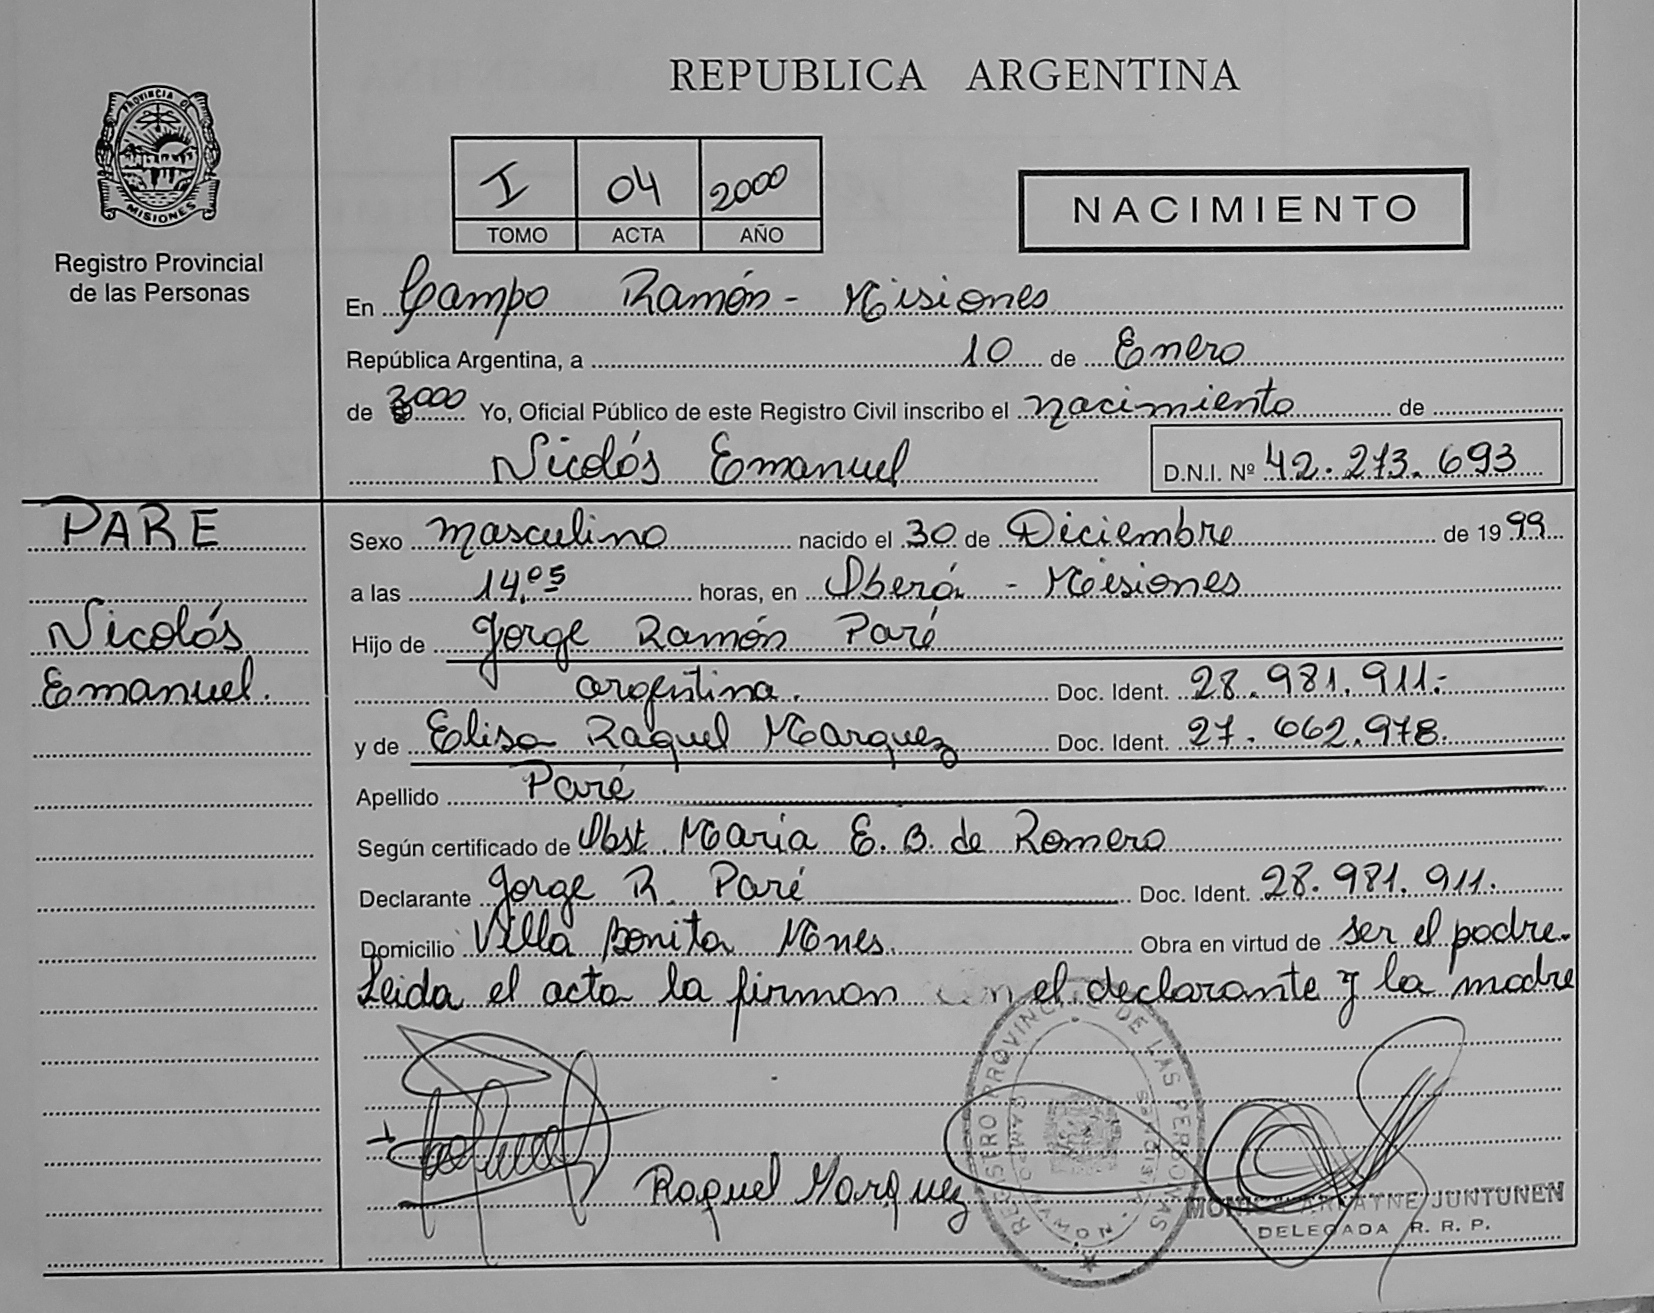 REPUBLICA ARGENTINA
PROVINCIA DE
MISIONES
Registro Provincial
de las Personas
I 04 2000
TOMO ACTA AÑO
NACIMIENTO
En Campo Ramón - Misiones
República Argentina, a 10 de Enero
de 2000 Yo, Oficial Público de este Registro Civil inscribo el nacimiento de
Nicolás Emanuel
D.N.I. Nº 42.213.693
PARE
Nicolás
Emanuel.
Sexo masculino nacido el 30 de Diciembre de 1999
a las 14,05 horas, en Oberá - Misiones
Hijo de Jorge Ramón Paré
argentina. Doc. Ident. 28.981.911.-
y de Elisa Raquel Marquez Doc. Ident. 27.662.978.
Apellido Paré
Según certificado de Obst María E. B. de Romero
Declarante Jorge R. Paré Doc. Ident. 28.981.911.
Domicilio Villa Bonita Mnes. Obra en virtud de ser el padre.
Leida el acta la firman el declarante y la madre
Raquel Marquez
REGISTRO PROVINCIAL DE LAS PERSONAS
CAMPO RAMON
JUNTUNEN
DELEGADA R. R. P.